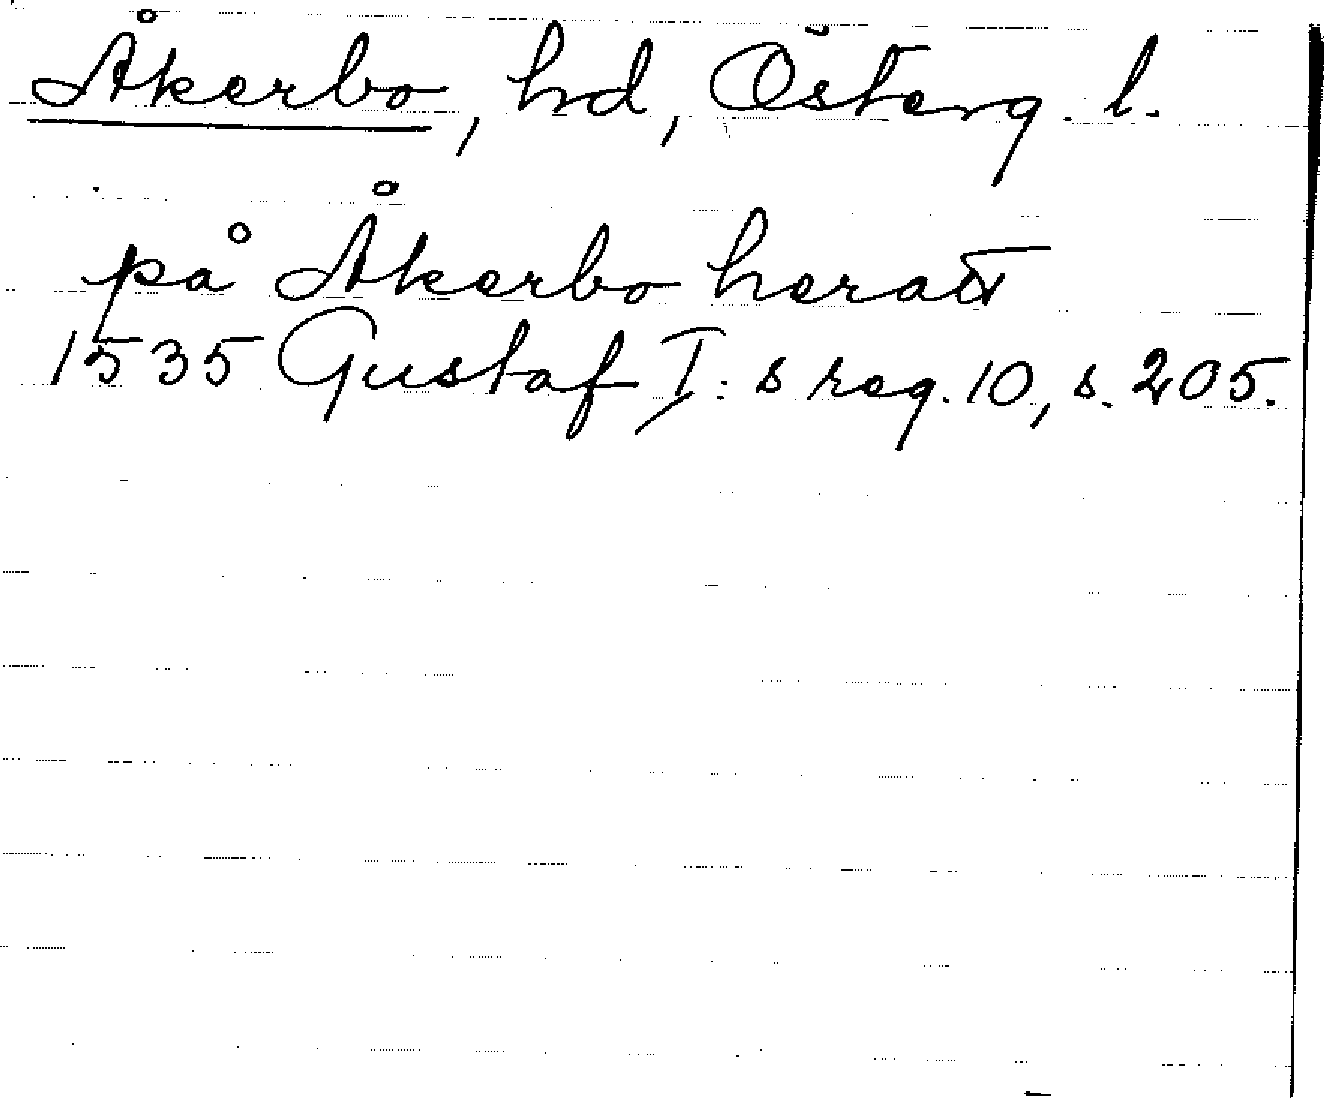 Åkerbo, hd, Österg. l.
på Åkerbo heratt
1535 Gustaf I:s reg. 10, s. 205.